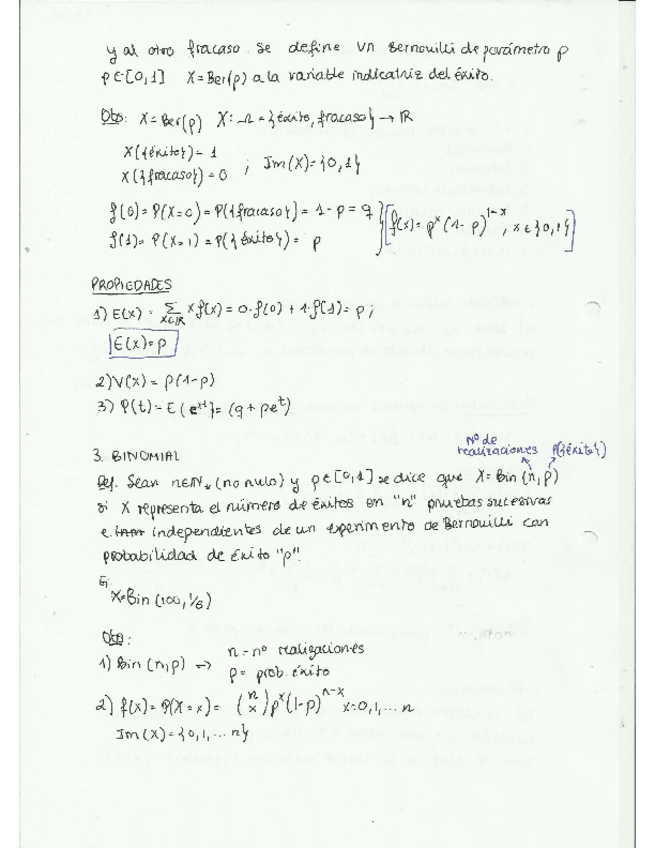 y al otro fracaso. Se define un Bernouilli de parámetro p
p∈[0,1] X=Ber(p) a la variable indicatriz del éxito.
Obs: X=Ber(p) X: Ω={éxito, fracaso} → ℝ
X({éxito})=1
X({fracaso})=0 ; Im(X)={0,1}
f(0)=P(X=0)=P({fracaso})=1-p=q
f(1)=P(X=1)=P({éxito})=p } [f(x)=p^x(1-p)^{1-x}, x∈{0,1}]
PROPIEDADES
1) E(x)= Σ_{x∈ℝ} x f(x)=0·f(0)+1·f(1)=p;
E(x)=p
2) V(x)=p(1-p)
3) φ(t)=E(e^{xt})=(q+pe^t)
3. BINOMIAL
Nº de
realizaciones P({éxito})
Def. Sean n∈ℕ* (no nulo) y p∈[0,1] se dice que X=Bin(n,p)
si X representa el número de éxitos en "n" pruebas sucesivas
e independientes de un experimento de Bernouilli con
probabilidad de éxito "p".
Ej.
X=Bin(100,1/6)
Obs:
1) Bin(n,p) → n = nº realizaciones
p = prob. éxito
2) f(x)=P(X=x)= (n x) p^x(1-p)^{n-x} x=0,1,...n
Im(X)={0,1,...n}